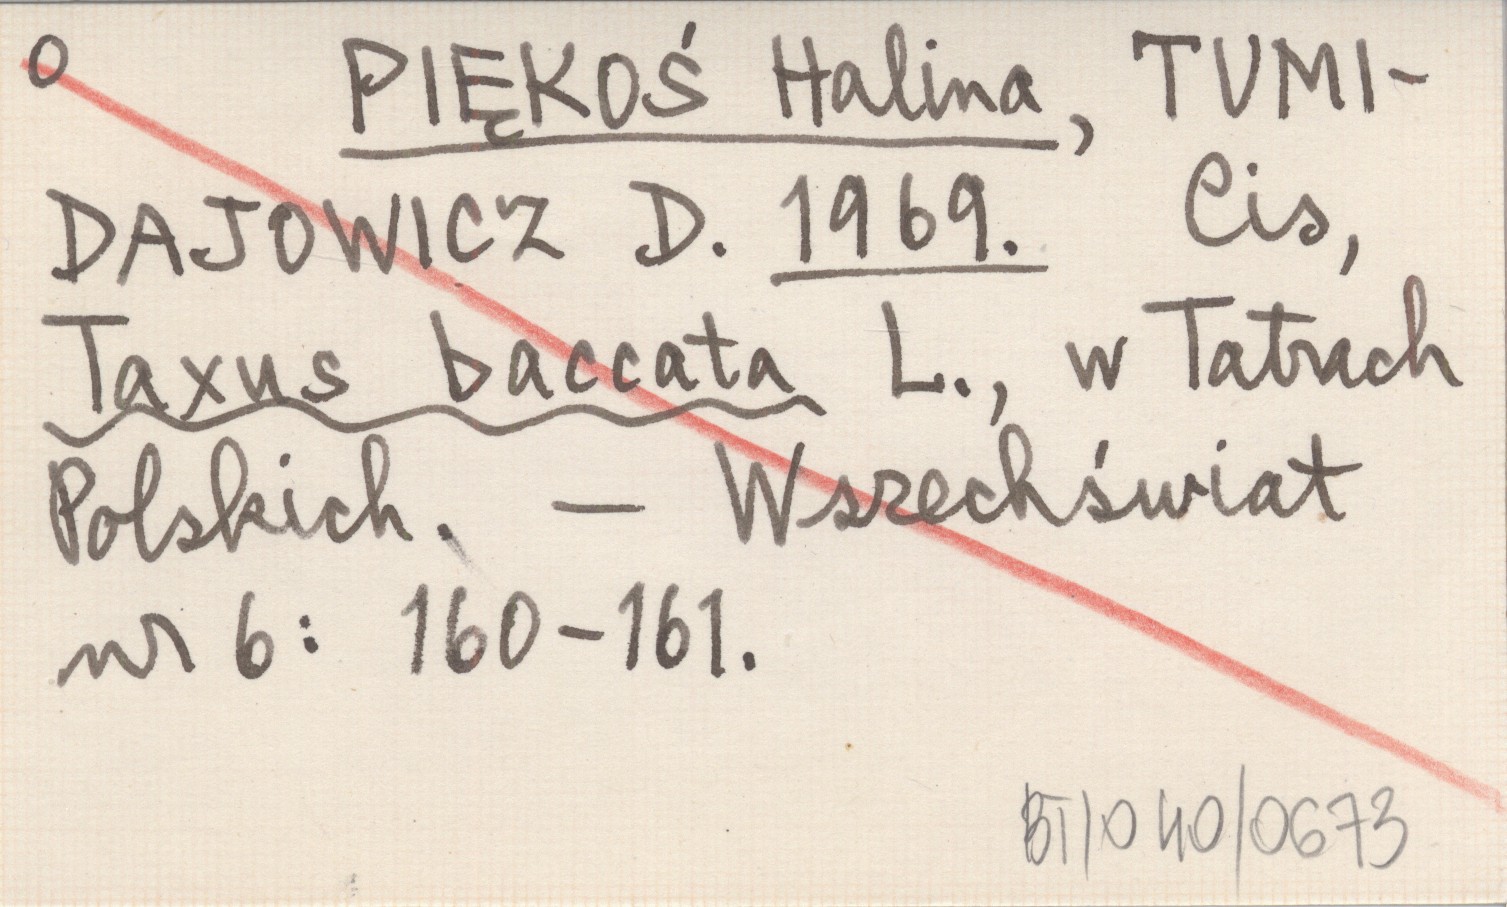 O PIĘKOŚ Halina, TUMI-
DAJOWICZ D. 1969. Cis,
Taxus baccata L., w Tatrach
Polskich. — Wszechświat
nr 6: 160-161.
BT/040/0673